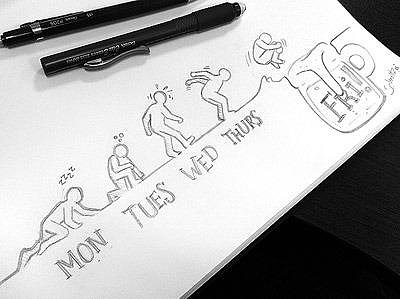 zzz
MON TUES WED THURS
FRI!!